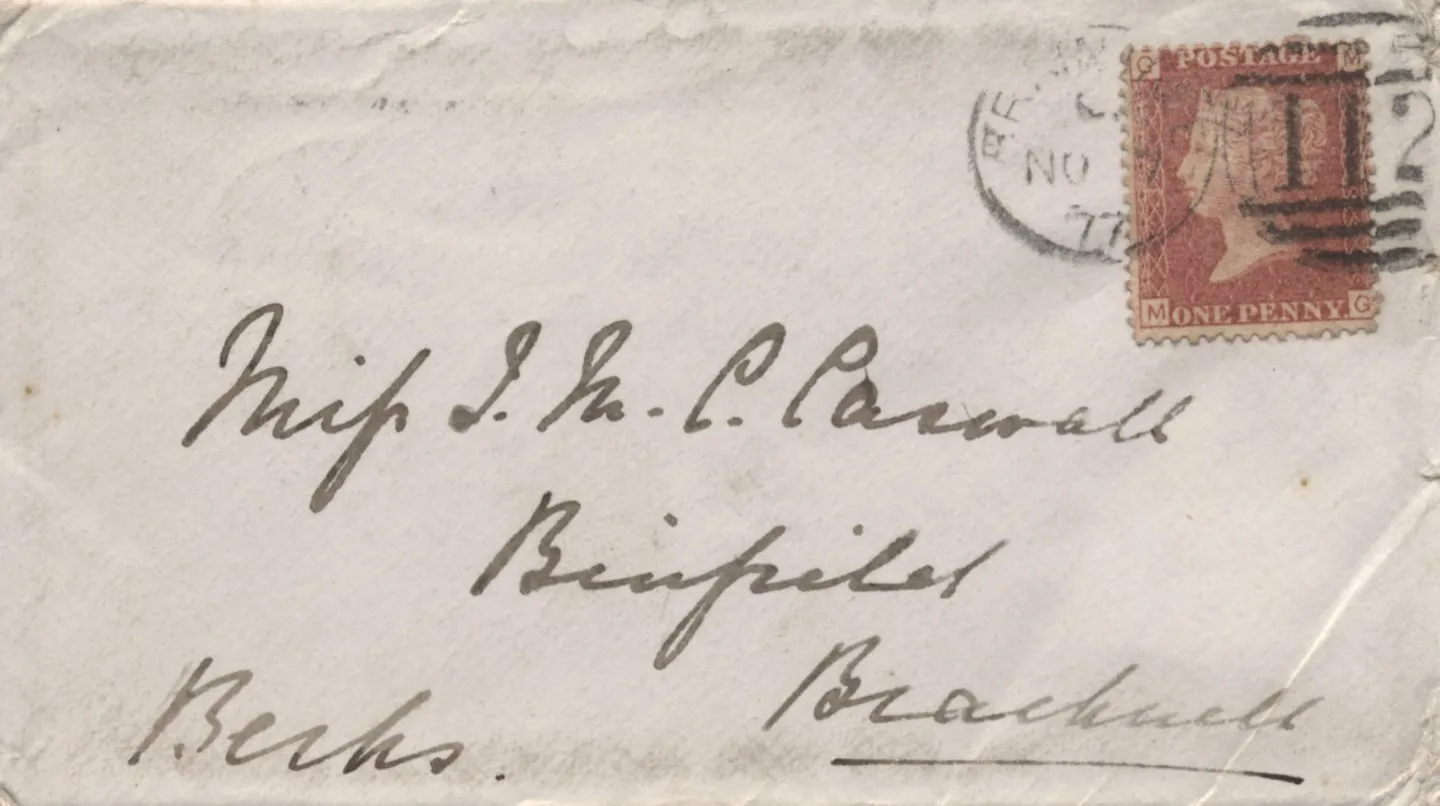 G POSTAGE M
NO
77
112
M ONE PENNY. G
Miss I. M. C. Caswall
Binfield
Bracknell
Berks.